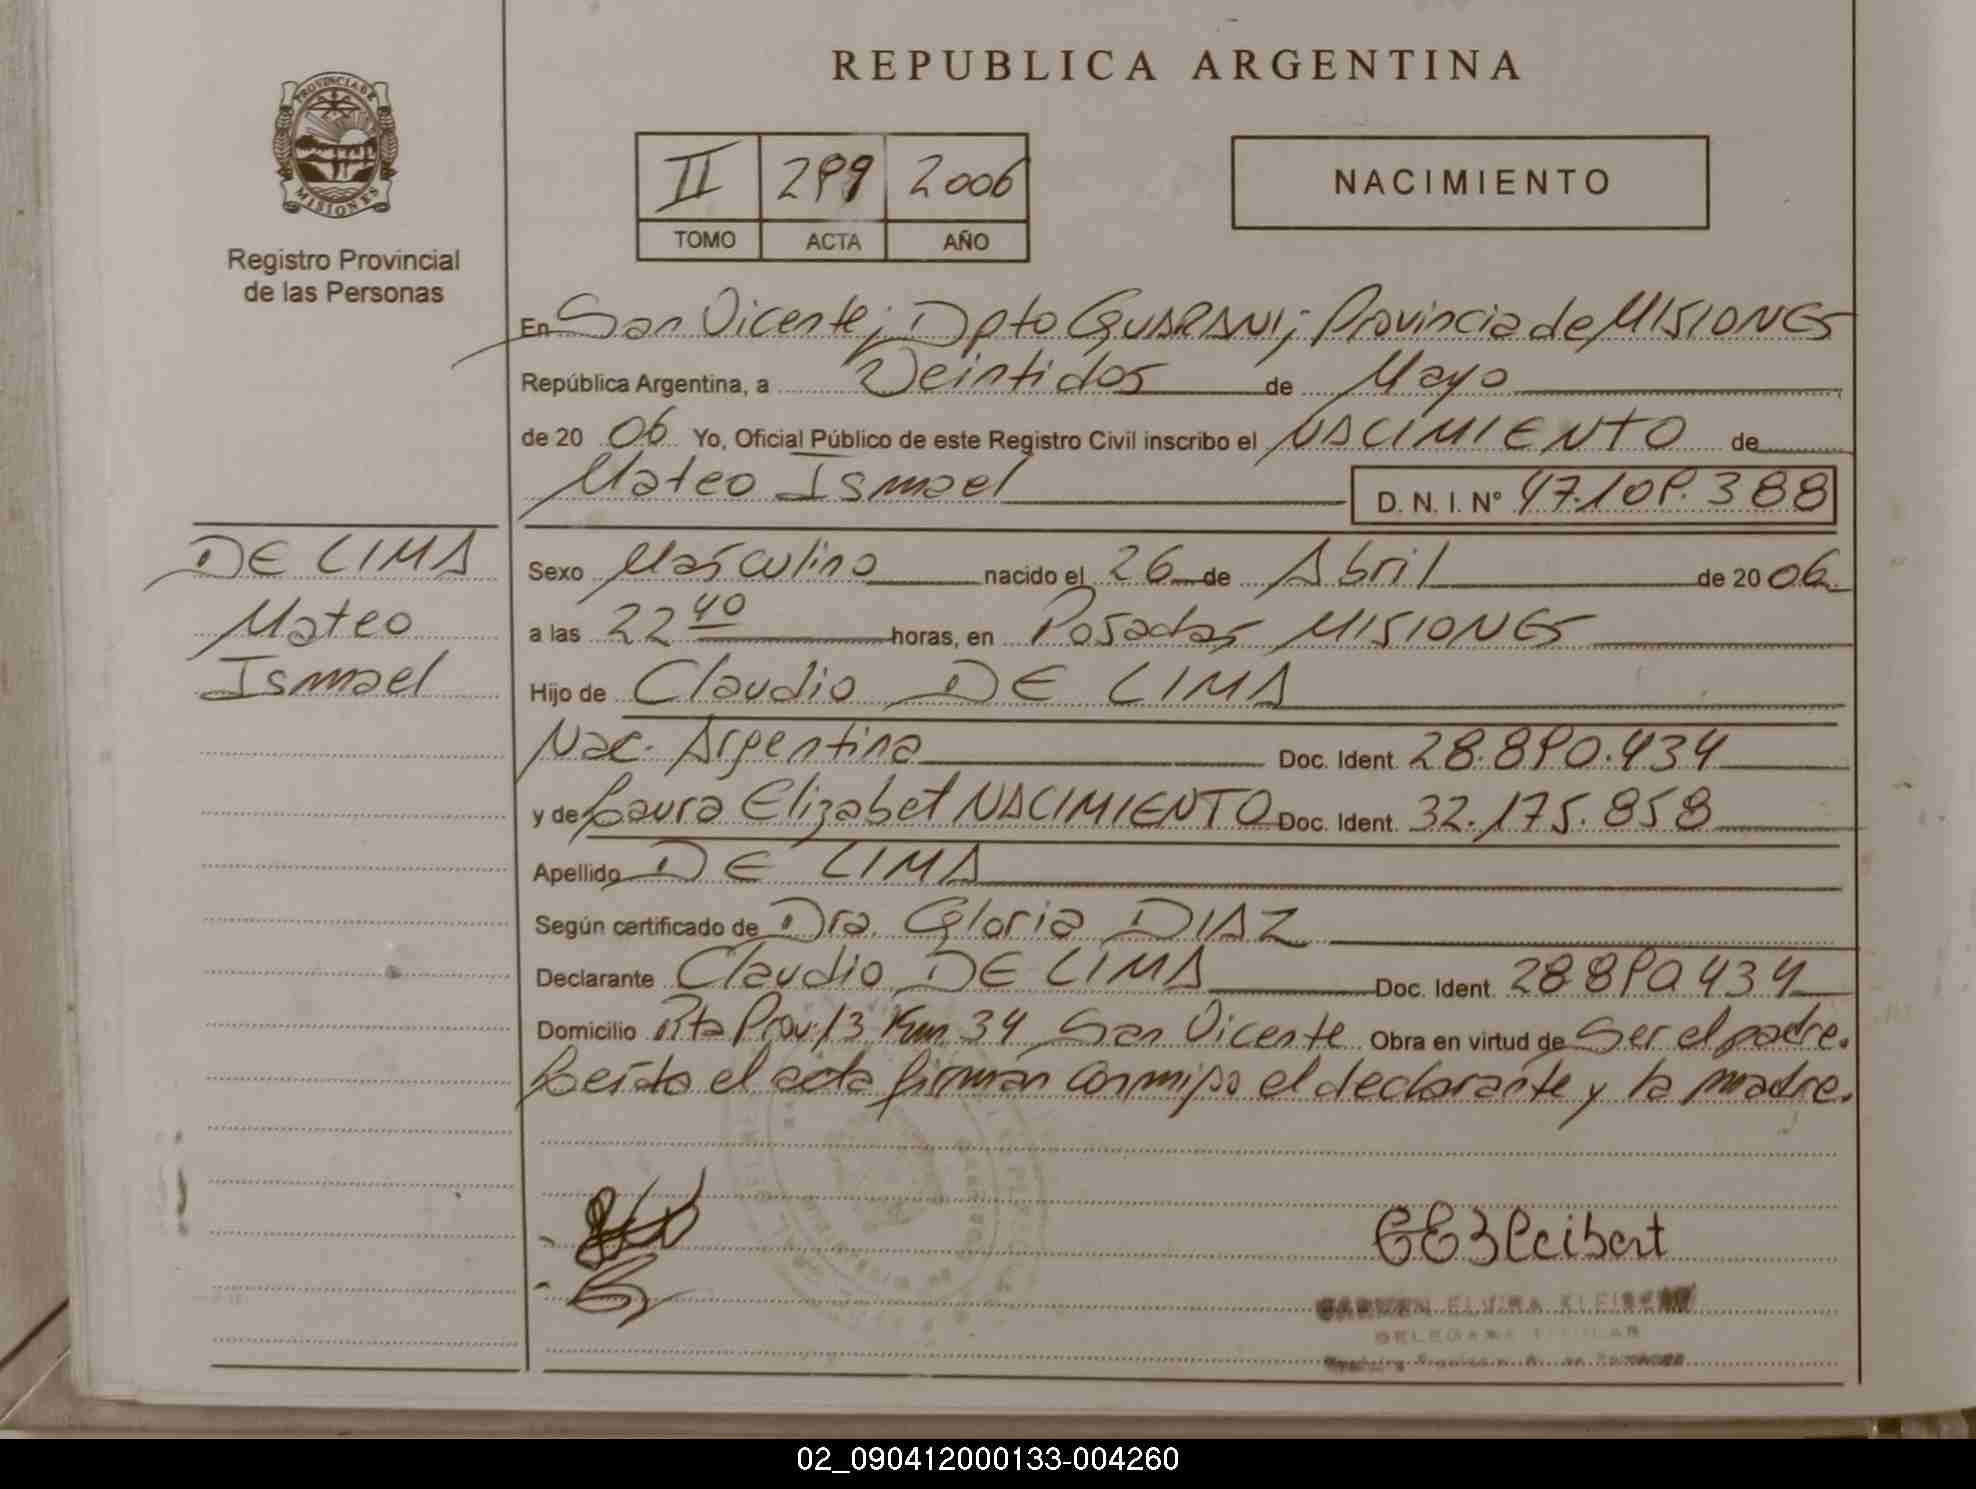 REPUBLICA ARGENTINA
PROVINCIA DE
MISIONES
Registro Provincial
de las Personas
II 299 2006
TOMO ACTA AÑO
NACIMIENTO
En San Vicente; Dpto GUARANI; Provincia de MISIONES
República Argentina, a Veintidos de Mayo
de 2006 Yo, Oficial Público de este Registro Civil inscribo el NACIMIENTO de
Mateo Ismael D. N. I. Nº 47.109.388
DE LIMA
Mateo
Ismael
Sexo Masculino nacido el 26 de Abril de 2006
a las 22 40 horas, en Posadas MISIONES
Hijo de Claudio DE LIMA
Nac. Argentina Doc. Ident. 28.890.434
y de Laura Elizabet NACIMIENTO Doc. Ident. 32.175.858
Apellido DE LIMA
Según certificado de Dra. Gloria DIAZ
Declarante Claudio DE LIMA Doc. Ident. 28890434
Domicilio Rta Prov. 13 Km 34 San Vicente Obra en virtud de Ser el padre.
Leida el acta firman conmigo el declarante y la madre.
CARMEN ELVIRA KLEIBERT
DELEGADA TITULAR
02_090412000133-004260